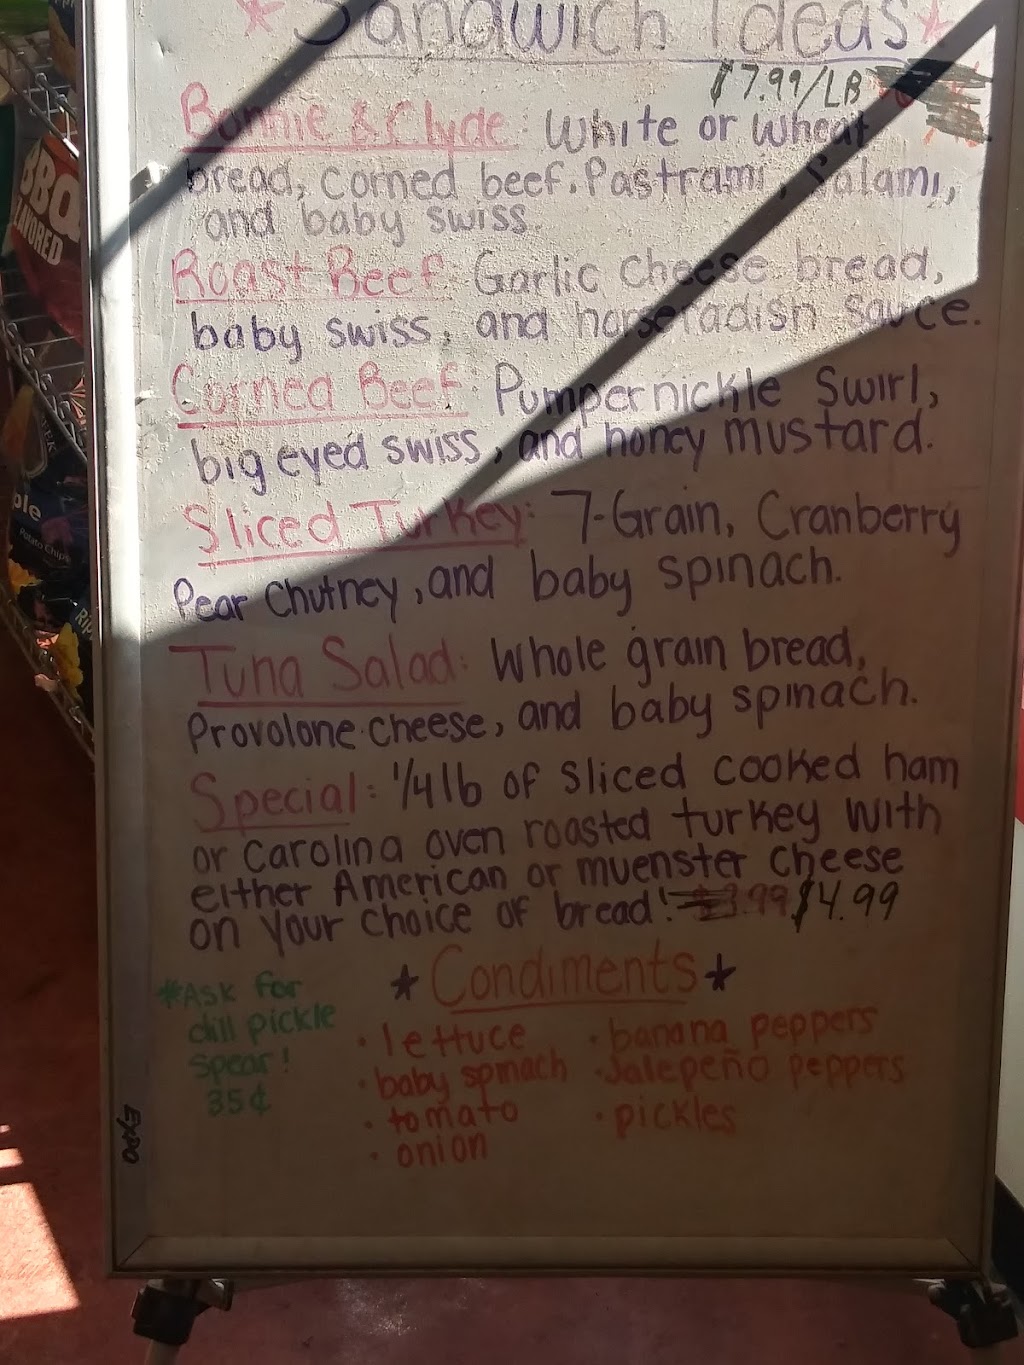 Sandwich Ideas
$7.99/LB
Bonnie & Clyde: White or wheat
bread, corned beef, Pastrami, Salami,
and baby swiss.
Roast Beef: Garlic cheese bread,
baby swiss, and horseradish sauce.
Corned Beef: Pumpernickle Swirl,
big eyed swiss, and honey mustard.
Sliced Turkey: 7-Grain, Cranberry
Pear Chutney, and baby spinach.
Tuna Salad: Whole grain bread,
Provolone cheese, and baby spinach.
Special: 1/4 lb of sliced cooked ham
or Carolina oven roasted turkey with
either American or muenster cheese
on your choice of bread! $3.99 $4.99
*Ask for
dill pickle
spear!
35¢
Condiments
• lettuce
• baby spinach
• tomato
• onion
• banana peppers
• Jalepeño peppers
• pickles
EXPO
BBQ
LAVORED
ple
Potato Chips